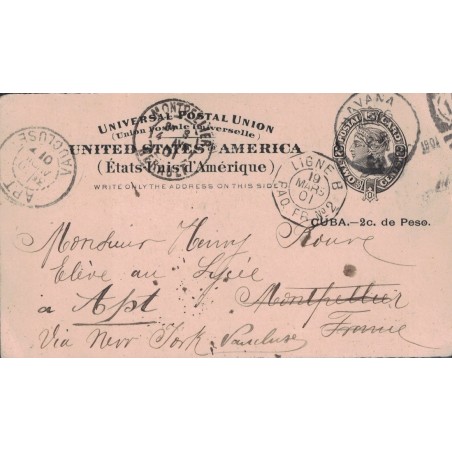 UNIVERSAL POSTAL UNION
(Union Postale Universelle)
UNITED STATES AMERICA
(États-Unis d'Amérique)
WRITE ONLY THE ADDRESS ON THIS SIDE
POSTAL CARD
TWO CENTS
CUBA.—2c. de Peso.
HAVANA
1901
MONTPELLIER
HERAULT
APT
VAUCLUSE
LIGNE B
19
MARS
01
PAQ. FR. No 2
Monsieur Henry Rouve
Elève au Lycée
à Apt Montpellier
Via New York Vaucluse France